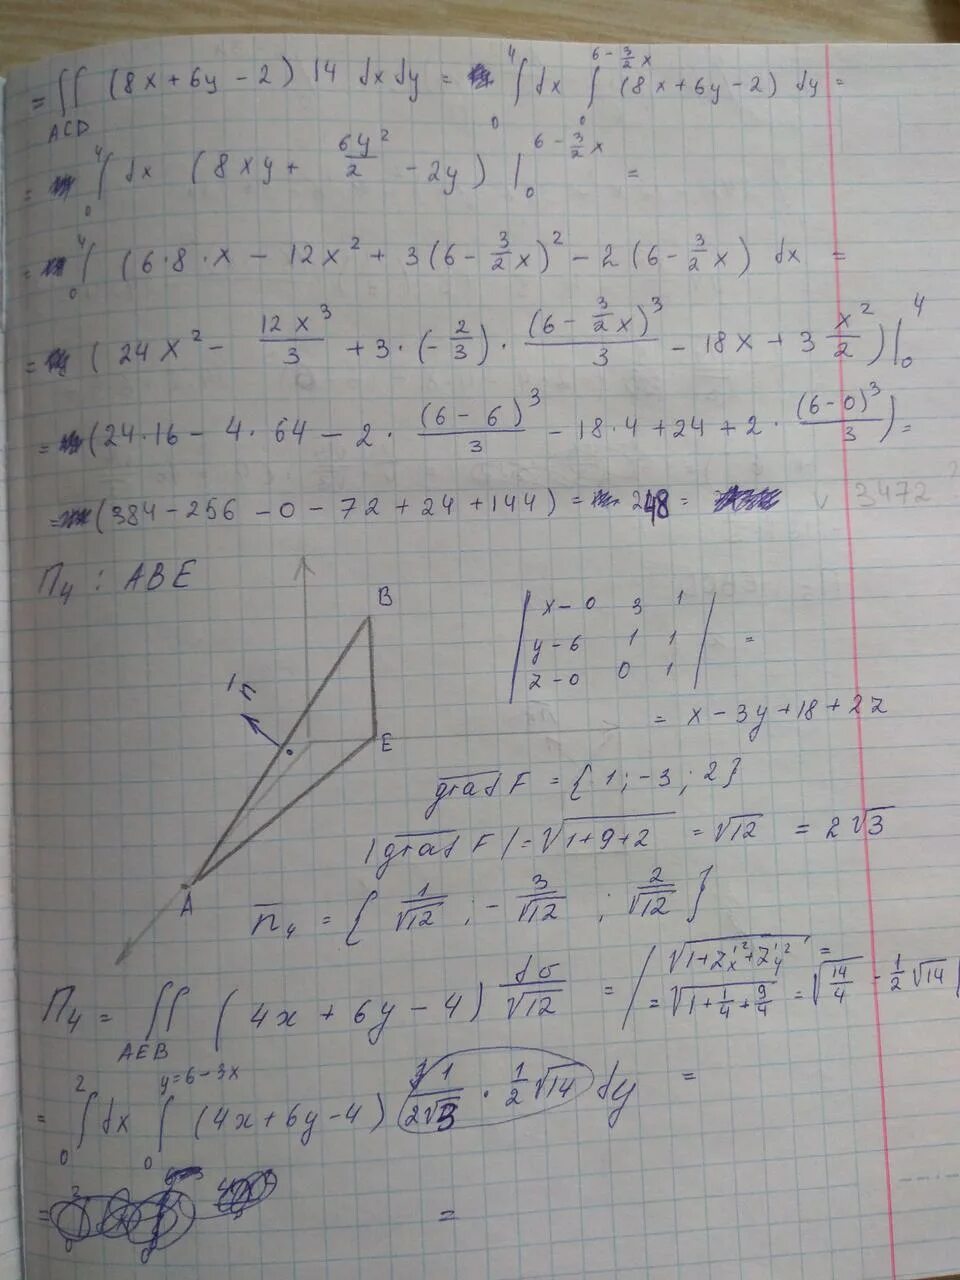 = ∬ (8x + 6y - 2) 14 dx dy = ∫ dx ∫ (8x + 6y - 2) dy =
4 6 - 3/2 x
ACD 0 0
= ∫ dx (8xy + 6y²/2 - 2y) | =
4 6 - 3/2 x
0 0
= ∫ (6·8·x - 12x² + 3(6 - 3/2 x)² - 2(6 - 3/2 x) dx =
4
0
= (24x² - 12x³/3 + 3·(-2/3)·(6 - 3/2 x)³/3 - 18x + 3 x²/2)|₀⁴
= (24·16 - 4·64 - 2·(6 - 6)³/3 - 18·4 + 24 + 2·(6-0)³/3) =
= (384 - 256 - 0 - 72 + 24 + 144) = 248 =
3472
П₄ : ABE
B
| x - 0 3 1 |
| y - 6 1 1 | =
| z - 0 0 1 |
n̄
E
= x - 3y + 18 + 2z
grad F = {1; -3; 2}
|grad F| = √(1+9+2) = √12 = 2√3
A
n̄₄ = {1/√12 ; - 3/√12 ; 2/√12}
П₄ = ∬ (4x + 6y - 4) dσ/√12 = | √(1+z'ₓ²+z'ᵧ²) =
AEB
= √(1+1/4+9/4) = √(14/4) - 1/2 √14 |
= ∫ dx ∫ (4x + 6y - 4) 1/(2√3) · 1/2 √14 dy =
2 y = 6 - 3x
0 0
= =